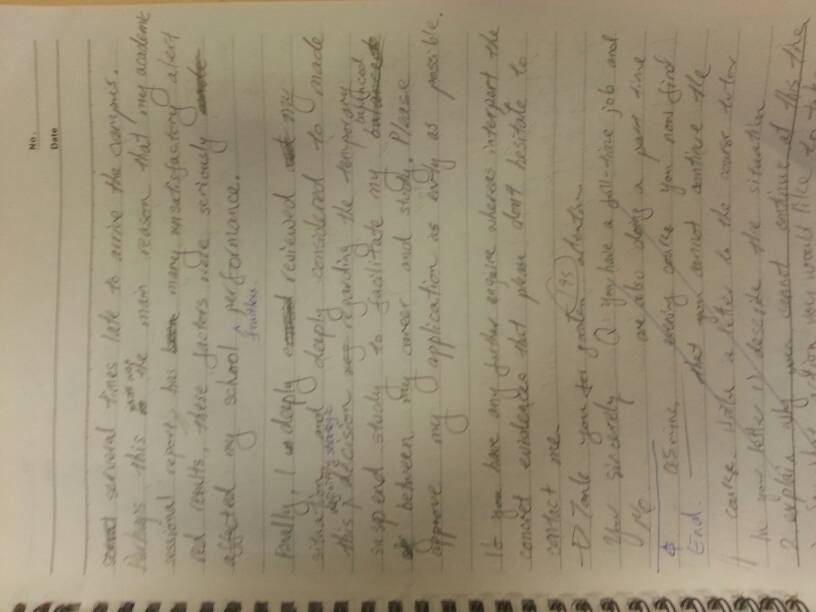 No.
Date
serveral times late to arrive the campus.
Perhaps this the main reason that my academic
sessional report, has many unsatisfactory alert
red results, these factors were seriously
affected my school performance.
frustrates
Finally, I deeply reviewed my
situation and deeply considered to made
this decision regarding the temporary
suspend study to facilitate my balanced
between my career and study. Please
approve my application as early as possible.
If you have any further enquire whereas interpart the
concret evidences that please don't hesitate to
contact me
you for attention
95
Your sincerely
Q: You have a full-time job and
are also doing a part time
evening course you now find
End.
that you cannot continue the
course write a letter to the course tutor
In your letter 1) describe the situation
2 explain why you cannot continue at this
you would like to